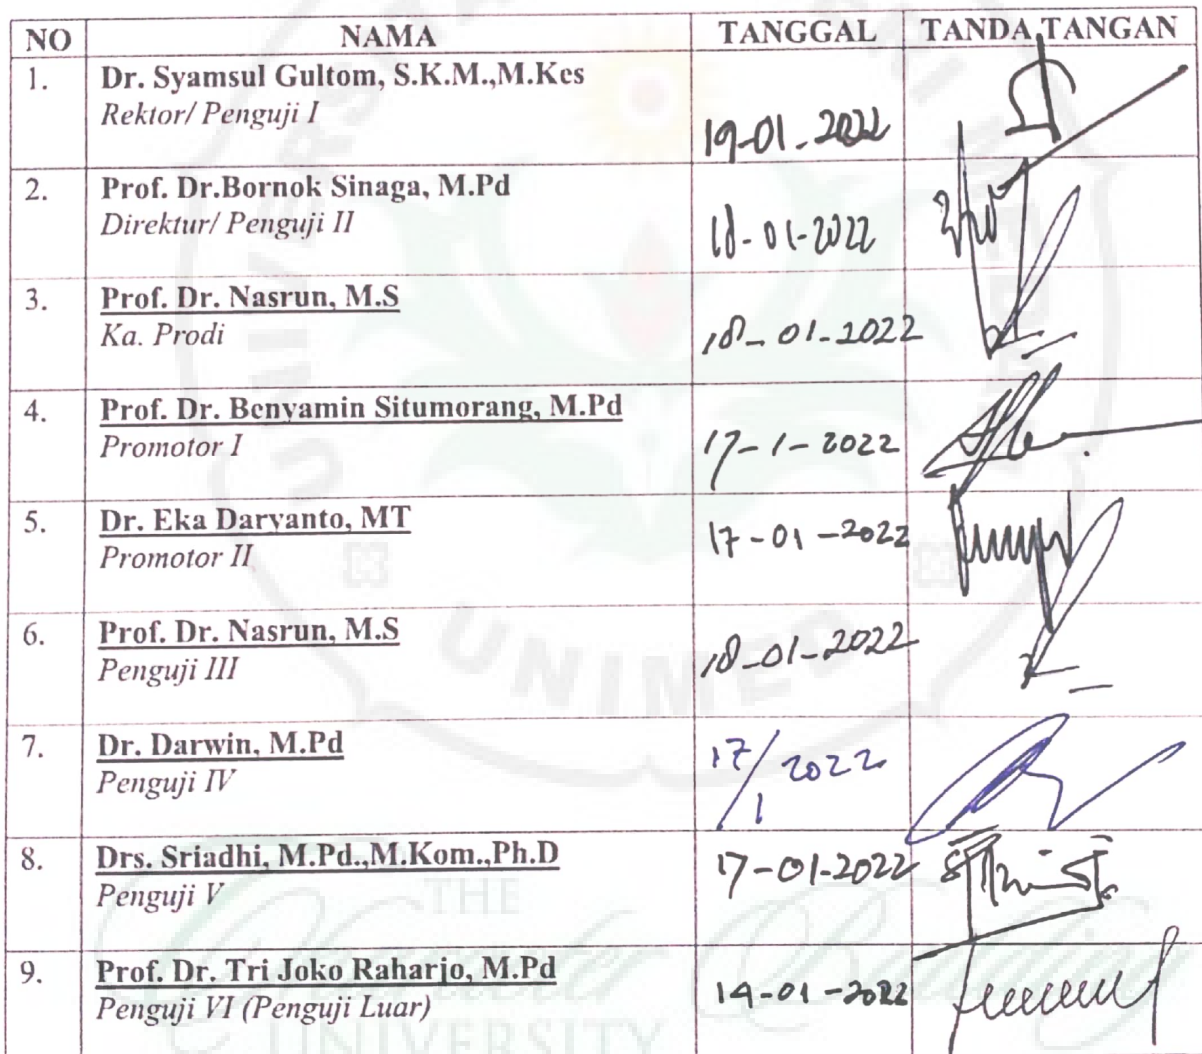 NO NAMA TANGGAL TANDA TANGAN
1. Dr. Syamsul Gultom, S.K.M.,M.Kes
Rektor/ Penguji I
19-01-2022
2. Prof. Dr.Bornok Sinaga, M.Pd
Direktur/ Penguji II
18-01-2022
3. Prof. Dr. Nasrun, M.S
Ka. Prodi
18-01-2022
4. Prof. Dr. Benyamin Situmorang, M.Pd
Promotor I
17-1-2022
5. Dr. Eka Daryanto, MT
Promotor II
17-01-2022
6. Prof. Dr. Nasrun, M.S
Penguji III
18-01-2022
7. Dr. Darwin, M.Pd
Penguji IV
17/1 2022
8. Drs. Sriadhi, M.Pd.,M.Kom.,Ph.D
Penguji V
17-01-2022
9. Prof. Dr. Tri Joko Raharjo, M.Pd
Penguji VI (Penguji Luar)
14-01-2022
UNIMED
THE
Character Building
UNIVERSITY